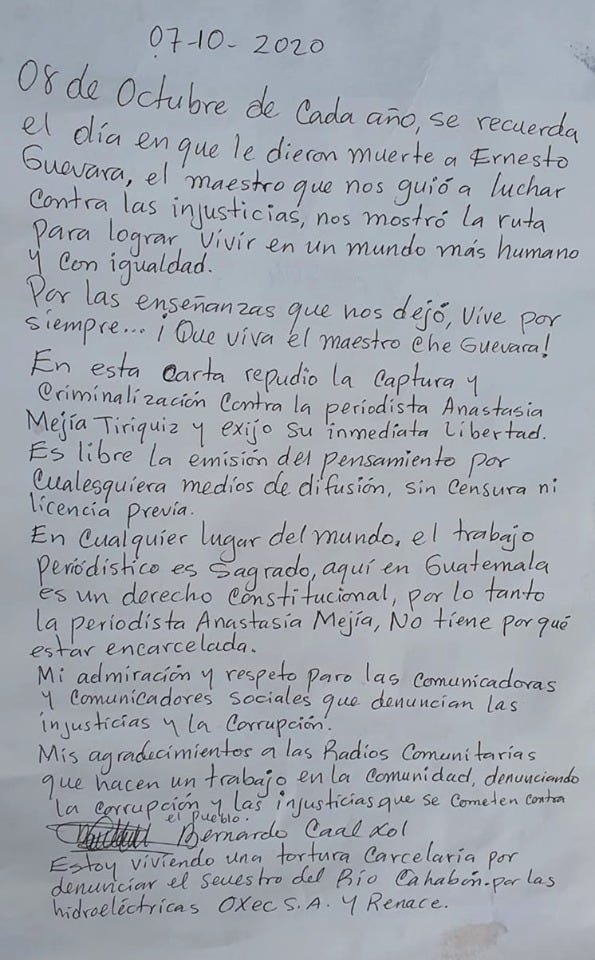 07-10-2020
08 de Octubre de Cada año, se recuerda
el día en que le dieron muerte a Ernesto
Guevara, el maestro que nos guió a luchar
Contra las injusticias, nos mostró la ruta
para lograr vivir en un mundo más humano
y con igualdad.
Por las enseñanzas que nos dejó, vive por
siempre... ¡Que viva el maestro Che Guevara!
En esta carta repudio la captura y
Criminalización contra la periodista Anastasia
Mejía Tiriquiz y exijo su inmediata libertad.
Es libre la emisión del pensamiento por
Cualesquiera medios de difusión, sin censura ni
licencia previa.
En Cualquier lugar del mundo, el trabajo
periódistico es Sagrado, aquí en Guatemala
es un derecho Constitucional, por lo tanto
la periodista Anastasia Mejía, No tiene por qué
estar encarcelada.
Mi admiración y respeto para las comunicadoras
y comunicadores sociales que denuncian las
injusticias y la corrupción.
Mis agradecimientos a las Radios Comunitarias
que hacen un trabajo en la comunidad, denunciando
la corrupción y las injusticias que se cometen contra
el pueblo.
Bernardo Caal Xol
Estoy viviendo una tortura carcelaria por
denunciar el seuestro del Río Cahabón por las
hidroeléctricas OXEC S.A. y Renace.